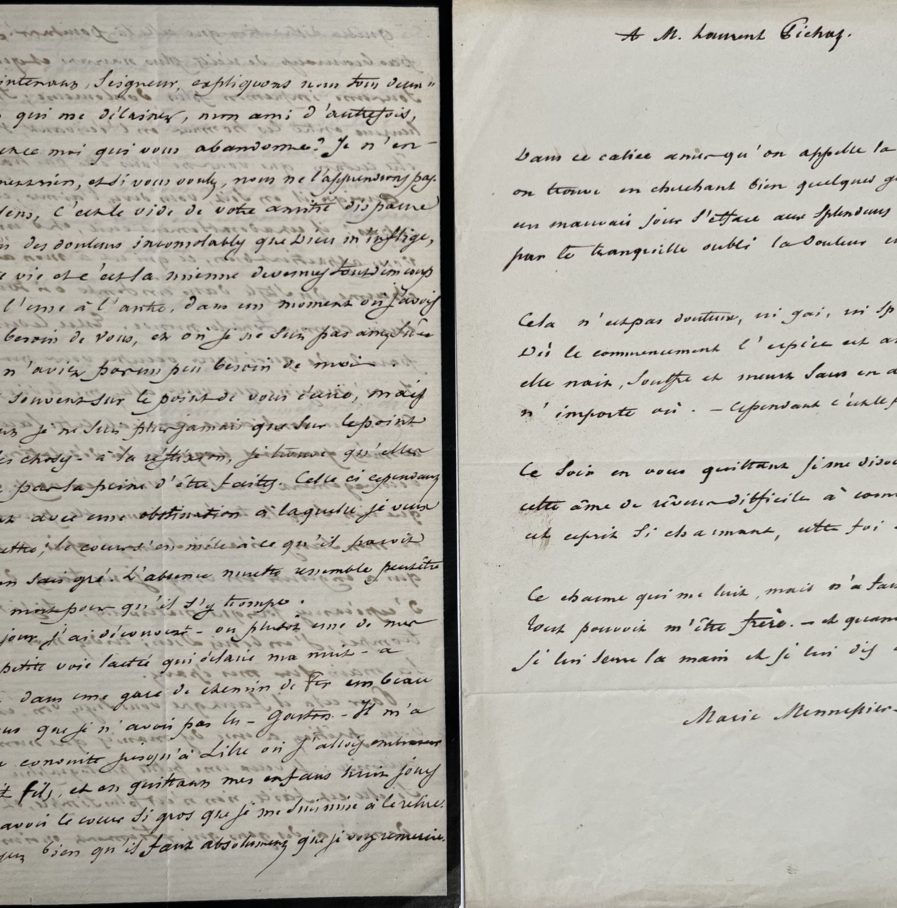 intenant, Seigneur, expliquons nous tous deux"
qui me délaisse, mon ami d'autrefois,
moi qui vous abandonne? Je n'en-
rien, et si vous voulez, nous ne l'apprendrons pas.
c'est le vide de votre amitié disparue
des douleurs inconsolables que Dieu m'inflige,
vie et c'est la mienne devenue tout d'un coup
l'une à l'autre, dans un moment où j'avois
besoin de vous, et où je ne suis pas
n'aviez pas un peu besoin de moi.
souvent sur le point de vous écrire, mais
je ne suis plus jamais que sur le point
choses - à la réflexion, je trouve qu'elles
pas la peine d'être faites. Celle ci cependant
avec une obstination à laquelle je veux
le coeur s'en mêle à ce qu'il paroit
sais gré. L'absence muette ressemble peut être
mort pour qu'il s'y trompe.
jour, j'ai découvert - ou plutôt une de mes
petite voie lactée qui éclaire ma nuit - a
dans une gare de chemin de fer un beau
que je n'avois pas lu - Gaston - Il m'a
conduite jusqu'à Lille où j'allois embrasser
fils, et en quittant mes enfans trois jours
avoir le coeur si gros que je me suis mise à le relire.
bien qu'il faut absolument que je vous remercie.
A M. Laurent Pichat.
Dans ce calice amer qu'on appelle la
on trouve en cherchant bien quelques
un mauvais jour s'efface aux splendeurs
par le tranquille oubli la douleur
Cela n'est pas douteux, ni gai, ni
Dès le commencement l'espèce est
elle nait, souffre et meurt sans en
n'importe où. - Cependant c'est le
Ce soir en vous quittant je me disois
cette âme de rêveur difficile à
cet esprit si charmant, cette foi
Ce charme qui me luit, mais n'a
tout pouvoit m'être frère. - et quand
Je lui serre la main et je lui dis
Marie Mennessier-